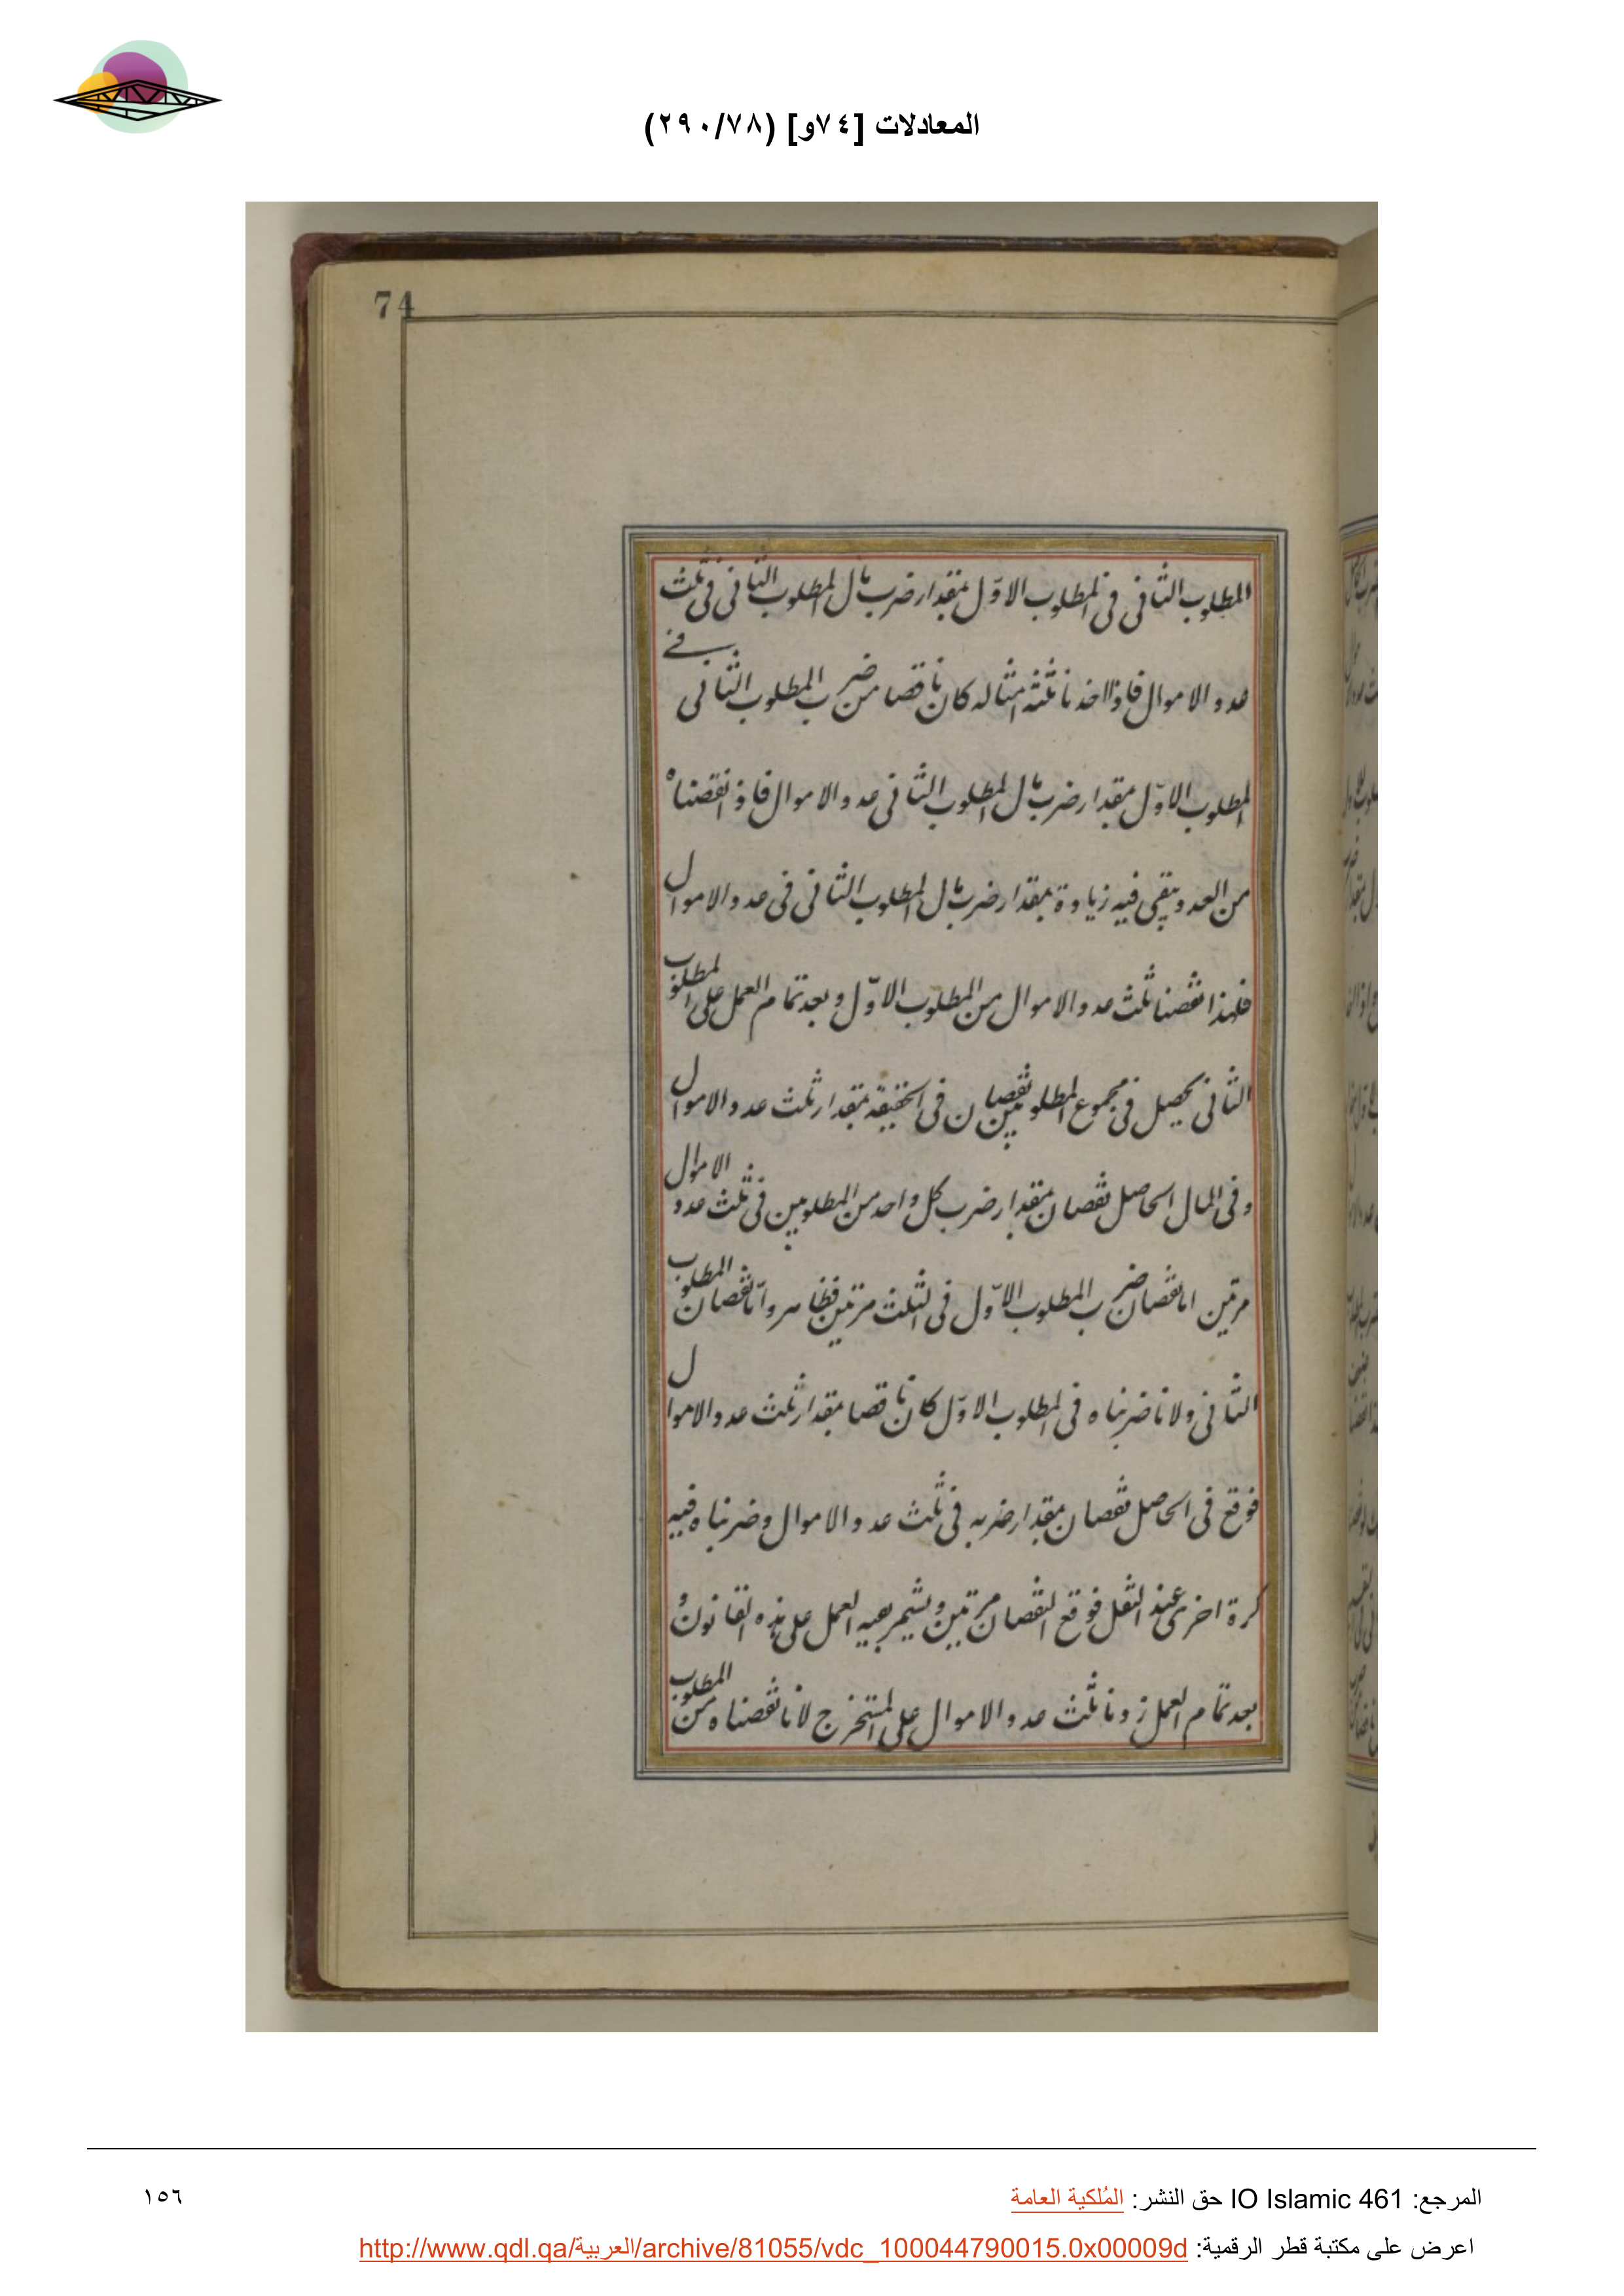 المعادلات [٧٤و] (٢٩٠/٧٨)
74
المطلوب الثاني في المطلوب الاوّل بمقدار ضرب مال المطلوب الثاني في ثلث
عدد الاموال فاذا اخذنا ثلثة امثاله كان ناقصا من ضرب المطلوب الثاني في
المطلوب الاوّل بمقدار ضرب مال المطلوب الثاني عدد الاموال فاذا نقصناه
من العدد يبقى فيه زيادة بمقدار ضرب مال المطلوب الثاني في عدد الاموال
فلهذا نقصنا ثلث عدد الاموال من المطلوب الاوّل و بعد تمام العمل على المطلوب
الثاني يحصل في مجموع المطلوبين نقصان في الحقيقة بمقدار ثلث عدد الاموال
و في المال الحاصل نقصان بمقدار ضرب كل واحد من المطلوبين في ثلث عدد الاموال
مرتين اما نقصان ضرب المطلوب الاوّل في الثلث مرتين فظاهر و امّا نقصان المطلوب
الثاني ولانا ضربناه في المطلوب الاوّل كان ناقصا بمقدار ثلث عدد الاموال
فوقع في الحاصل نقصان بمقدار ضربه في ثلث عدد الاموال و ضربناه فيه
كرة اخرى عند النقل فوقع النقصان مرتين و العمل على هذه القانون و
بعد تمام العمل زدنا ثلث عدد الاموال على المستخرج لانا نقصناه من المطلوب
المرجع: IO Islamic 461 حق النشر: المُلكية العامة
١٥٦
اعرض على مكتبة قطر الرقمية: http://www.qdl.qa/العربية/archive/81055/vdc_100044790015.0x00009d